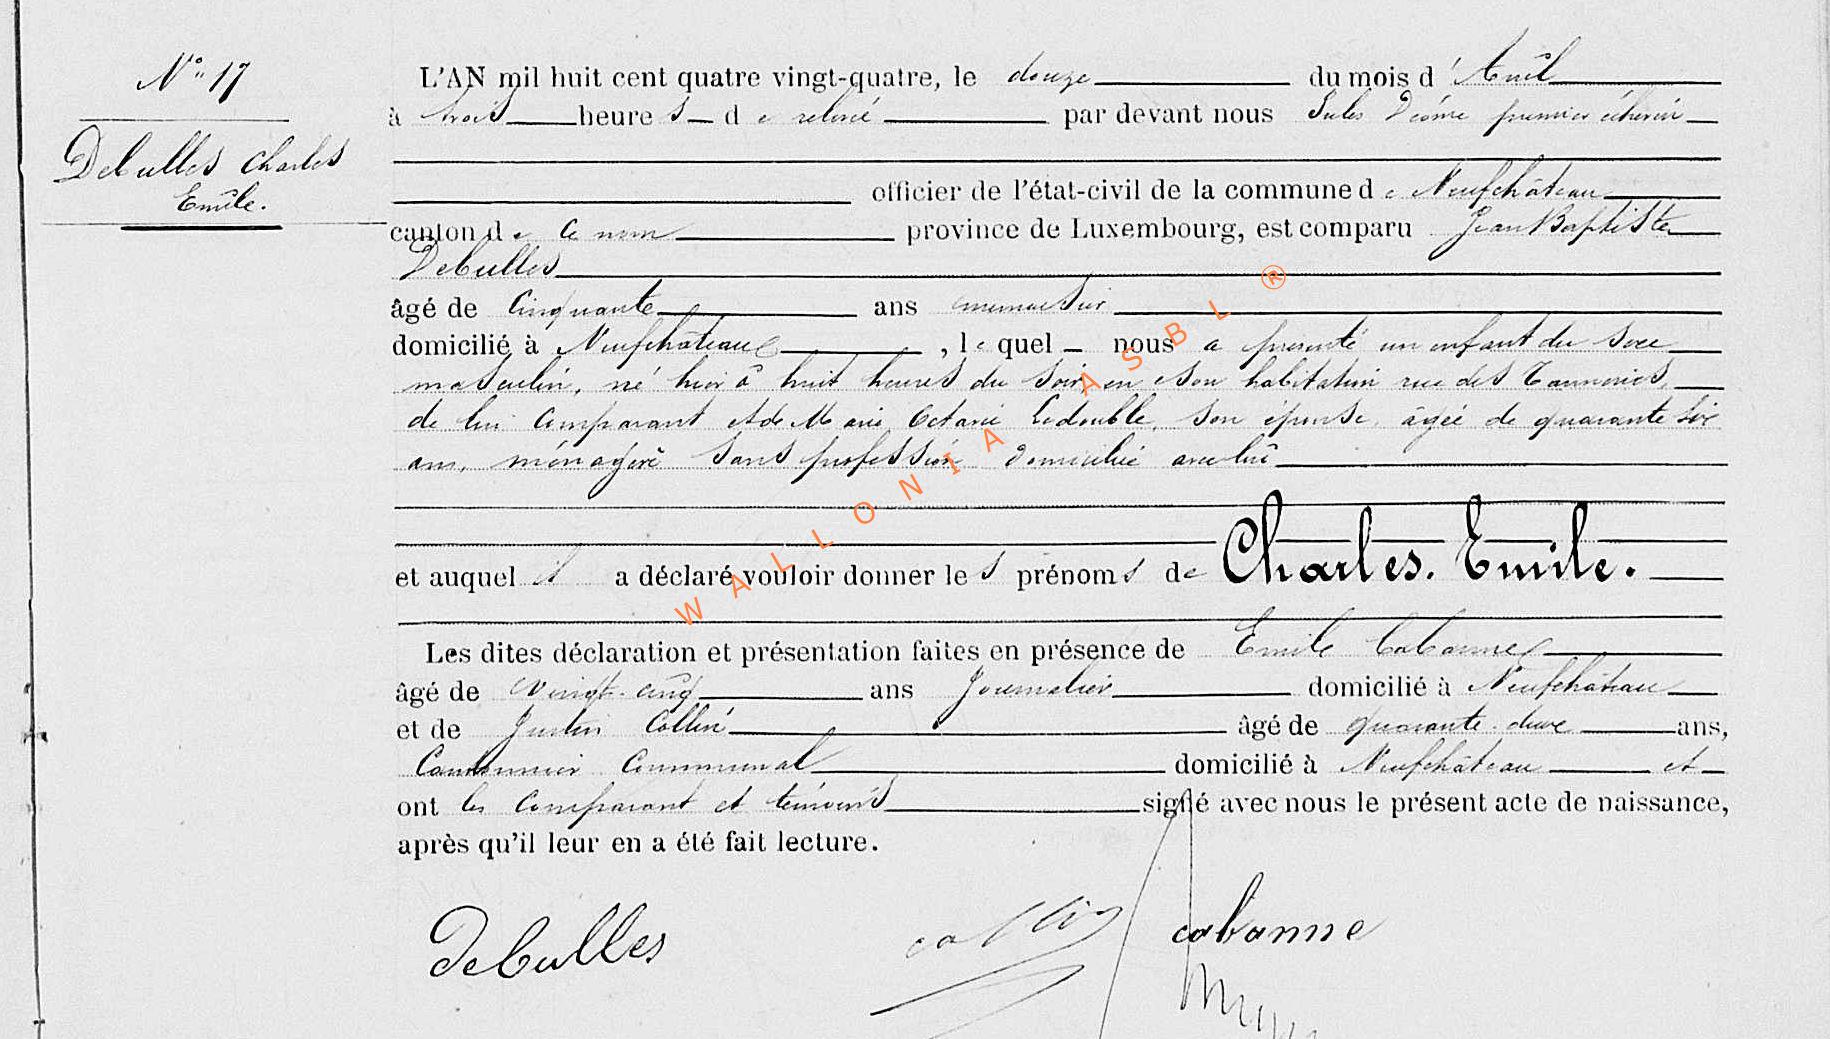 N° 17
Debulles Charles
Emile.
L'AN mil huit cent quatre vingt-quatre, le douze du mois d'Avril
à trois heures de relevé par devant nous Jules premier échevin
officier de l'état-civil de la commune de Neufchâteau
canton de ce nom province de Luxembourg, est comparu Jean Baptiste
Debulles
âgé de cinquante ans menuisier
domicilié à Neufchâteau, lequel nous a présenté un enfant du sexe
masculin, né hier à huit heures du soir en son habitation rue des Tanneries,
de lui comparant et de Marie Octavie Ledouble, son épouse, âgée de quarante six
ans, ménagère sans profession domiciliée avec lui
et auquel il a déclaré vouloir donner les prénoms de Charles. Emile.
Les dites déclaration et présentation faites en présence de Emile Cabanne
âgé de vingt-cinq ans Journalier domicilié à Neufchâteau
et de Justin Collin âgé de quarante-deux ans,
Cantonnier Communal domicilié à Neufchâteau et
ont les comparant et témoins signé avec nous le présent acte de naissance,
après qu'il leur en a été fait lecture.
Debulles
collin
cabanne
WALLONIA ASBL ®